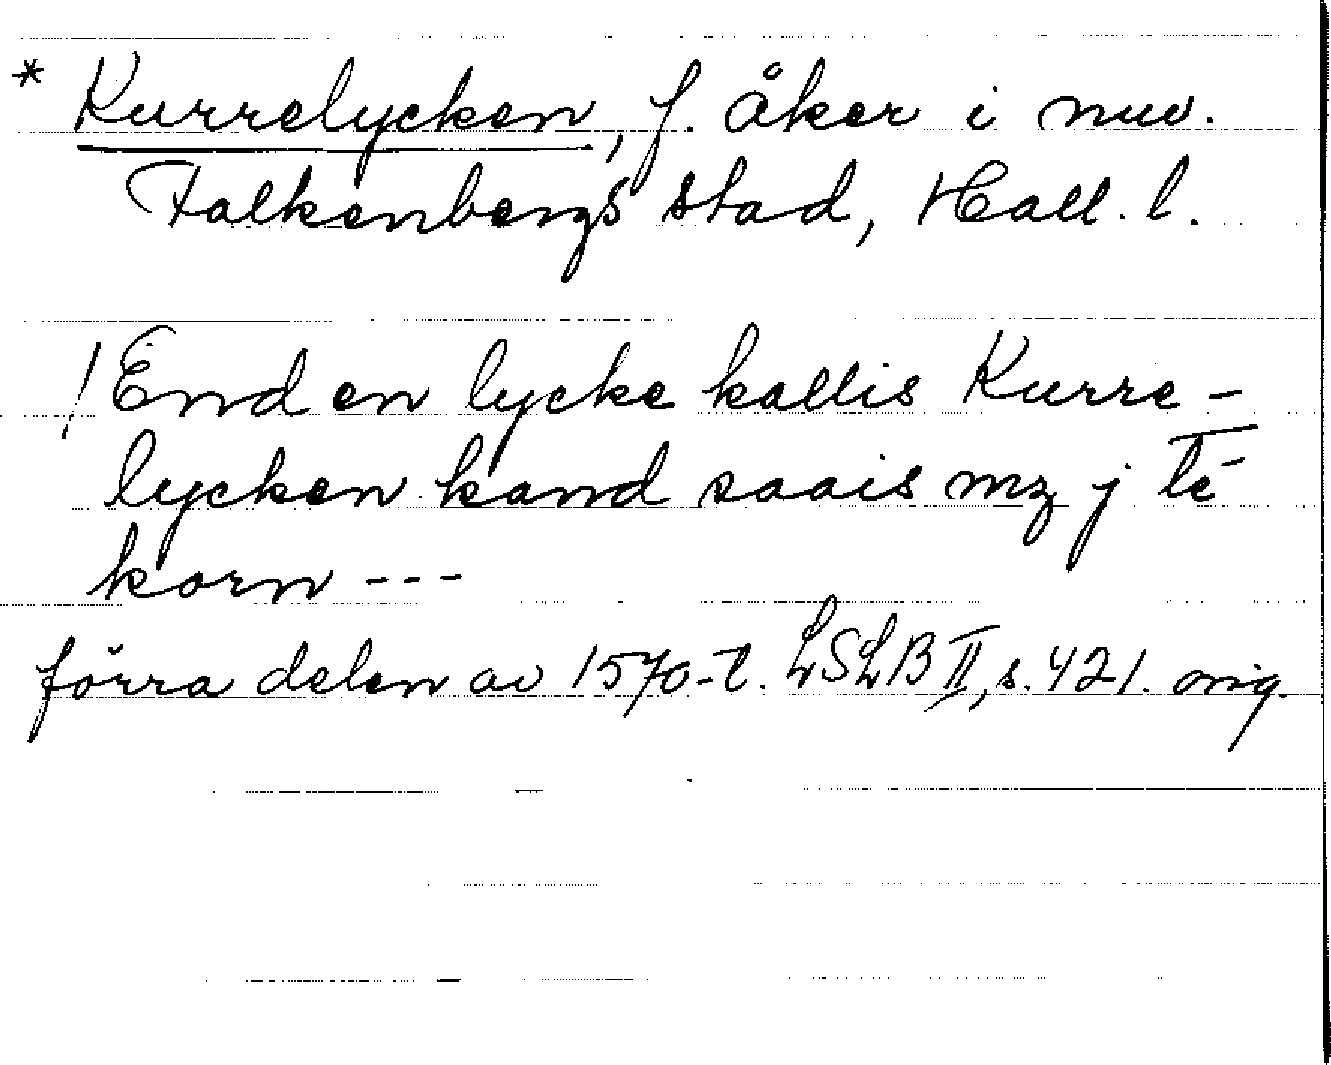 * Kurrelycken, f. åker i nuv.
Falkenbergs stad, Hall. l.
! End en lycke kallis Kurre-
lycken kand saais mz j
korn ---
förra delen av 1570-t. LSLB II, s. 421. orig.